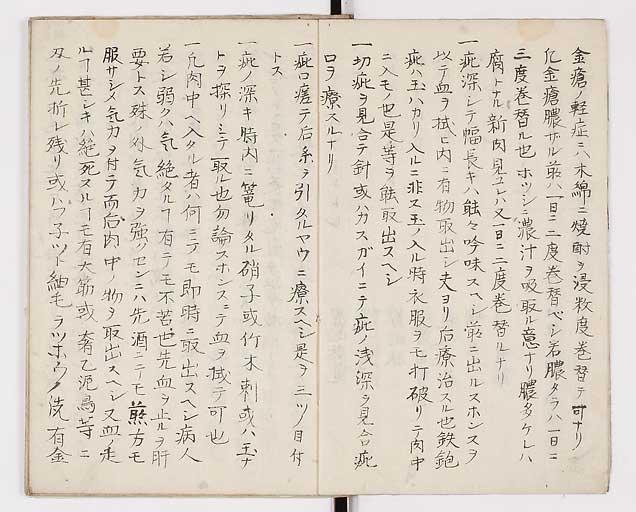 金瘡ノ軽症ニハ木綿ニ焼酎ヲ浸数度巻替テ可ナリ
凡金瘡膿ザル前ハ一日ニ二度巻替ベシ若膿タラハ一日ニ
三度巻替ル也ホツシニ濃汁ヲ吸取ル意ナリ膿多ケレハ
腐トナル新肉見ユレハ又一日ニ二度巻替ルナリ
一疵深シテ幅長キハ能々吟味スヘシ前ニ出ルスホンスヲ
以テ血ヲ拭ヒ内ニ有物取出シ夫ヨリ后療治スル也鉄鉋
疵ハ玉ハカリ入ルニ非ス玉ノ入ル時衣服ヲモ打破リテ肉中
ニ入モノ也是等ヲ能取出スヘシ
一切疵ヲ見合テ針或ハカスガイニテ疵ノ浅深ヲ見合疵
口ヲ療スルナリ
一疵口瘥テ后糸ヲ引タルヤウニ療スヘシ是ヲ三ツノ目付
トス
一疵ノ深キ時内ニ篭リタル硝子或竹木刺或ハ玉ナ
トヲ探リミテ取ル也勿論スホンスニテ血ヲ拭テ可也
一凡肉中ヘ入タル者ハ何ニテモ即時ニ取出スヘシ病人
若シ弱クハ気絶タルヿ有テモ不苦也先血ヲ止ルヲ肝
要トス殊ノ外気力ヲ強クセンニハ先酒ニテモ 方モ
服サシメ気力ヲ付テ而后肉中ノ物ヲ取出スヘシ又血ノ走
ルヿ甚シキハ絶死スルヿモ有大筋或
刄ノ先折レ残リ或ハ 有金